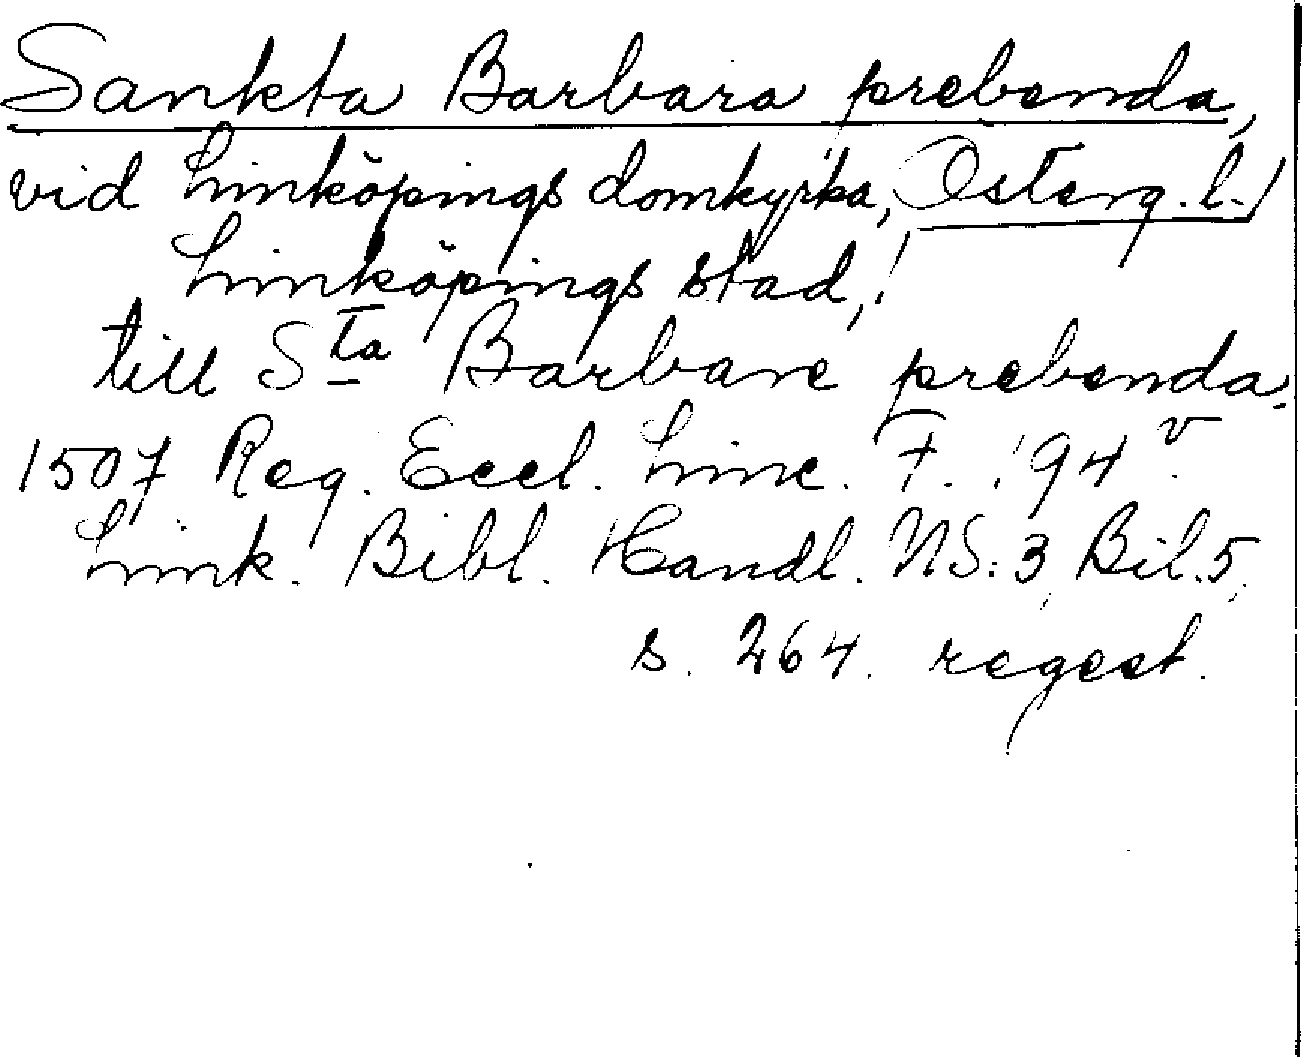 Sankta Barbara prebenda,
vid Linköpings domkyrka, Österg. l.
Linköpings stad,
till Sta Barbare prebenda.
1507 Reg. Eccl. Linc. F. 94 v.
Link. Bibl. Handl. NS: 3, Bil. 5,
s. 264. regest.